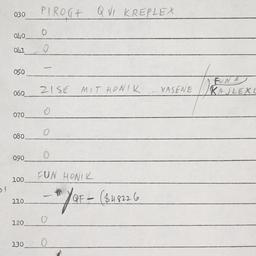 030 PIROGT QVI KREPLEX
040 0
041 0
050 —
060 ZISE MIT HONIK .. VASENE // KAJLEXL
070 0
080 0
090 0
100 FUN HONIK
110 — * / QF — (SH8226
120 0
130 0